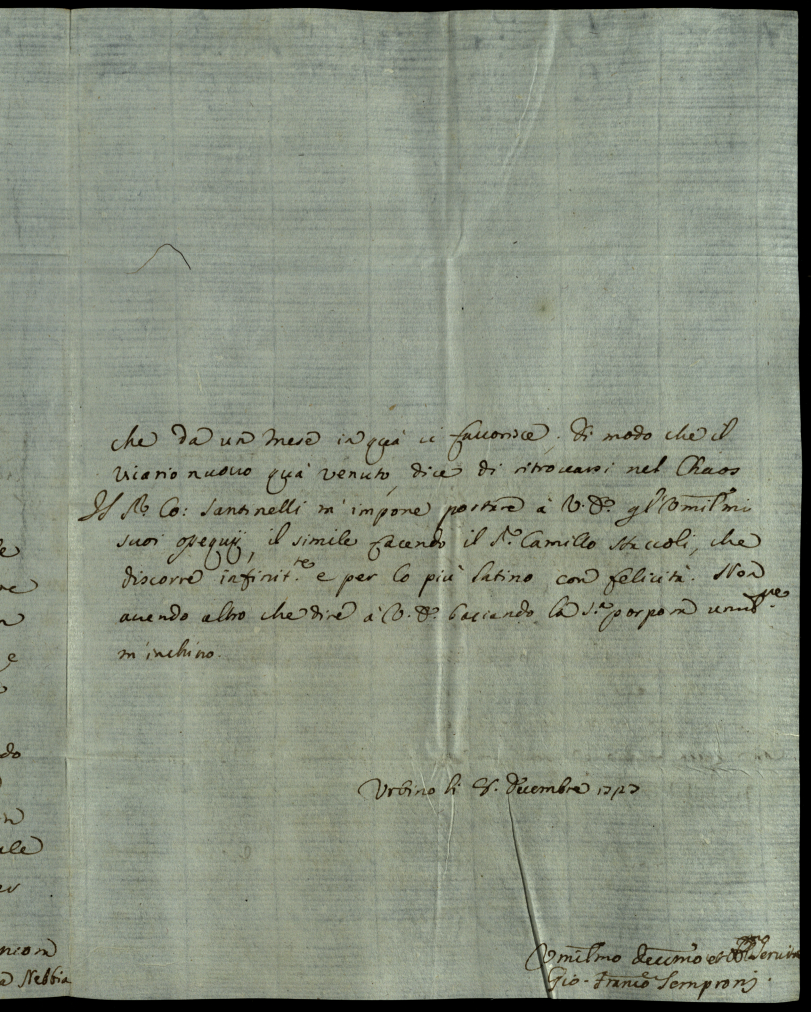 che da un mese in quà ci fauorisce. Di modo che il
Vicario nuouo quà venuto, dice di ritrouarsi nel Chaos
Il Sr. Co: Santinelli m'impone portare à V. E. gl'Umilmi
suoi ossequij, il simile facendo il Sr. Camillo Staccoli, che
discorre infinit.te e per lo più latino, con felicità. Non
auendo altro che dire à V. E. baciando la S.a porpora
m'inchino.
Urbino li 8. Decembre 1727
Umilmo Deuotmo et
Gio. Franco Sempronj
ncora
a Nebbia